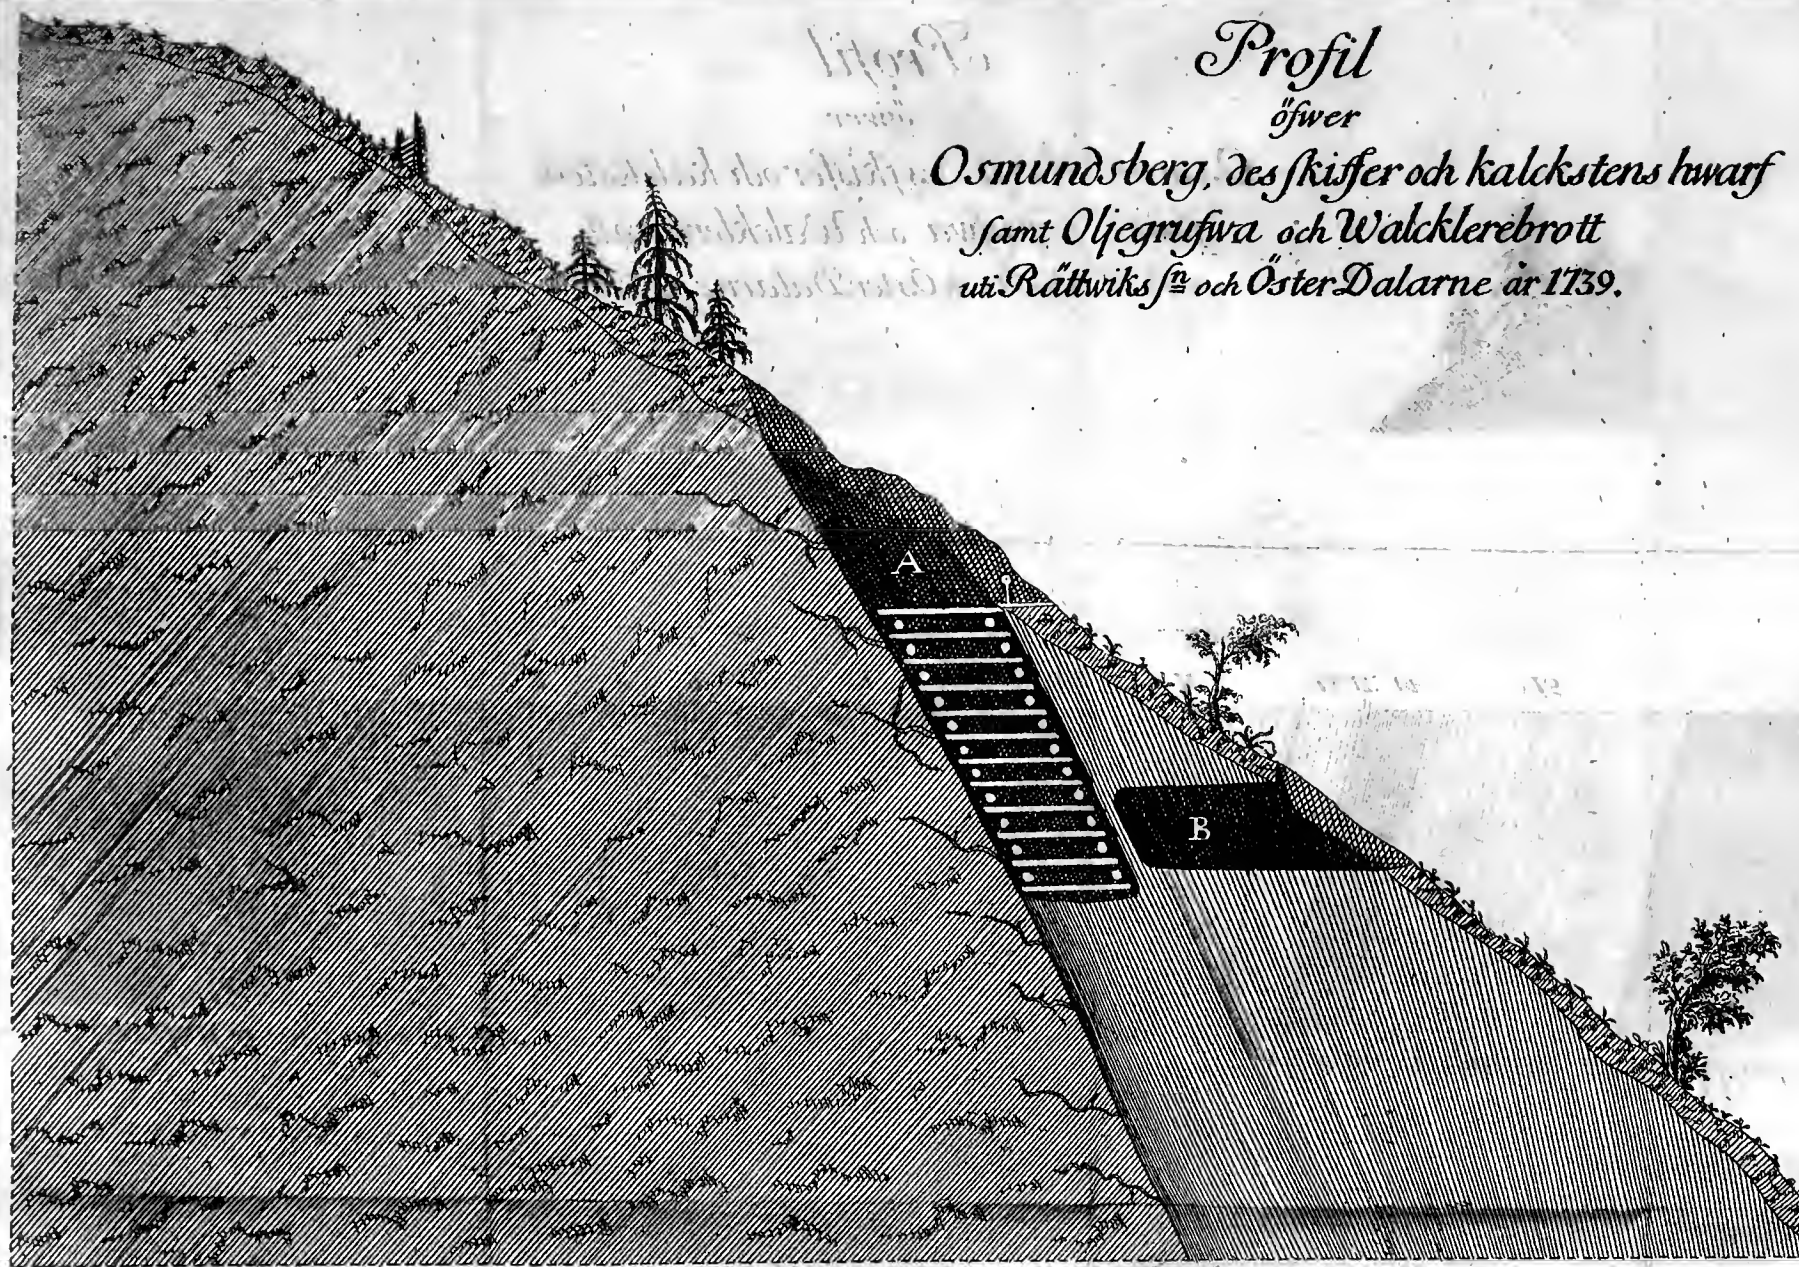 Profil
öfwer
Osmundsberg, des skiffer och kalckstens hwarf
samt Oljegrufwa och Walcklerebrott
uti Rättwiks sn och Öster Dalarne år 1739.
A
B